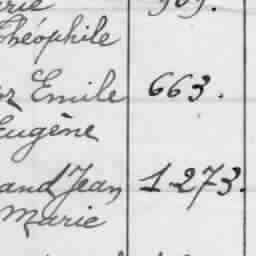 Théophile
Emile 663.
Eugène
and Jean 1273.
Marie